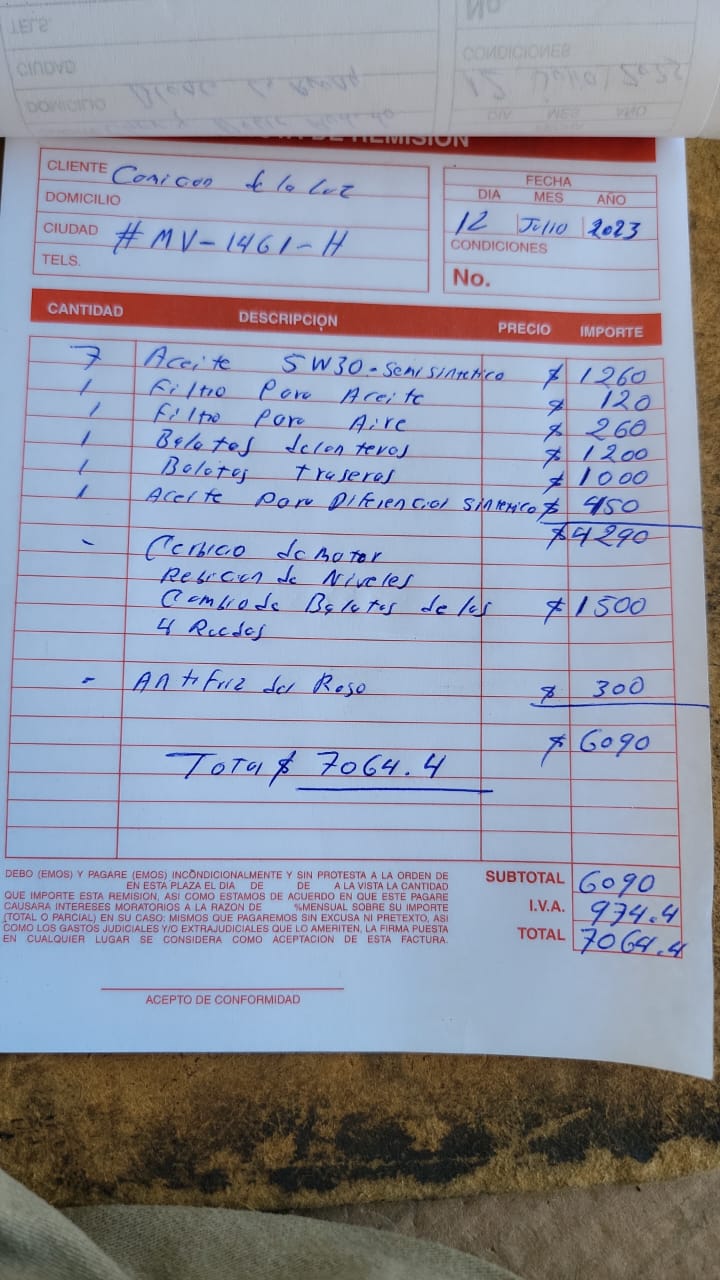 TELS.
CIUDAD
DOMICILIO
No.
CONDICIONES
12 Julio 2023
DIA MES AÑO
DE REMISION
CLIENTE Comicon de la Luz
DOMICILIO
CIUDAD #MV-1461-H
TELS.
FECHA
DIA MES AÑO
12 Julio 2023
CONDICIONES
No.
CANTIDAD DESCRIPCION PRECIO IMPORTE
7 Aceite 5W30-Semisintetico $ 1260
1 Filtro Para Aceite $ 120
1 Filtro Para Aire $ 260
1 Balatas delanteras $ 1200
1 Balatas traseras $ 1000
1 Aceite para Diferencial Sintetico $ 450
$4290
- de Motor
de Niveles
Cambio de Balatas de las $ 1500
4 Ruedas
- Antifriz del Roso $ 300
$ 6090
Total $ 7064.4
SUBTOTAL 6090
I.V.A. 974.4
TOTAL 7064.4
DEBO (EMOS) Y PAGARE (EMOS) INCONDICIONALMENTE Y SIN PROTESTA A LA ORDEN DE
EN ESTA PLAZA EL DIA DE DE A LA VISTA LA CANTIDAD
QUE IMPORTE ESTA REMISION, ASI COMO ESTAMOS DE ACUERDO EN QUE ESTE PAGARE
CAUSARA INTERESES MORATORIOS A LA RAZON DE %MENSUAL SOBRE SU IMPORTE
(TOTAL O PARCIAL) EN SU CASO: MISMOS QUE PAGAREMOS SIN EXCUSA NI PRETEXTO, ASI
COMO LOS GASTOS JUDICIALES Y/O EXTRAJUDICIALES QUE LO AMERITEN, LA FIRMA PUESTA
EN CUALQUIER LUGAR SE CONSIDERA COMO ACEPTACION DE ESTA FACTURA.
ACEPTO DE CONFORMIDAD